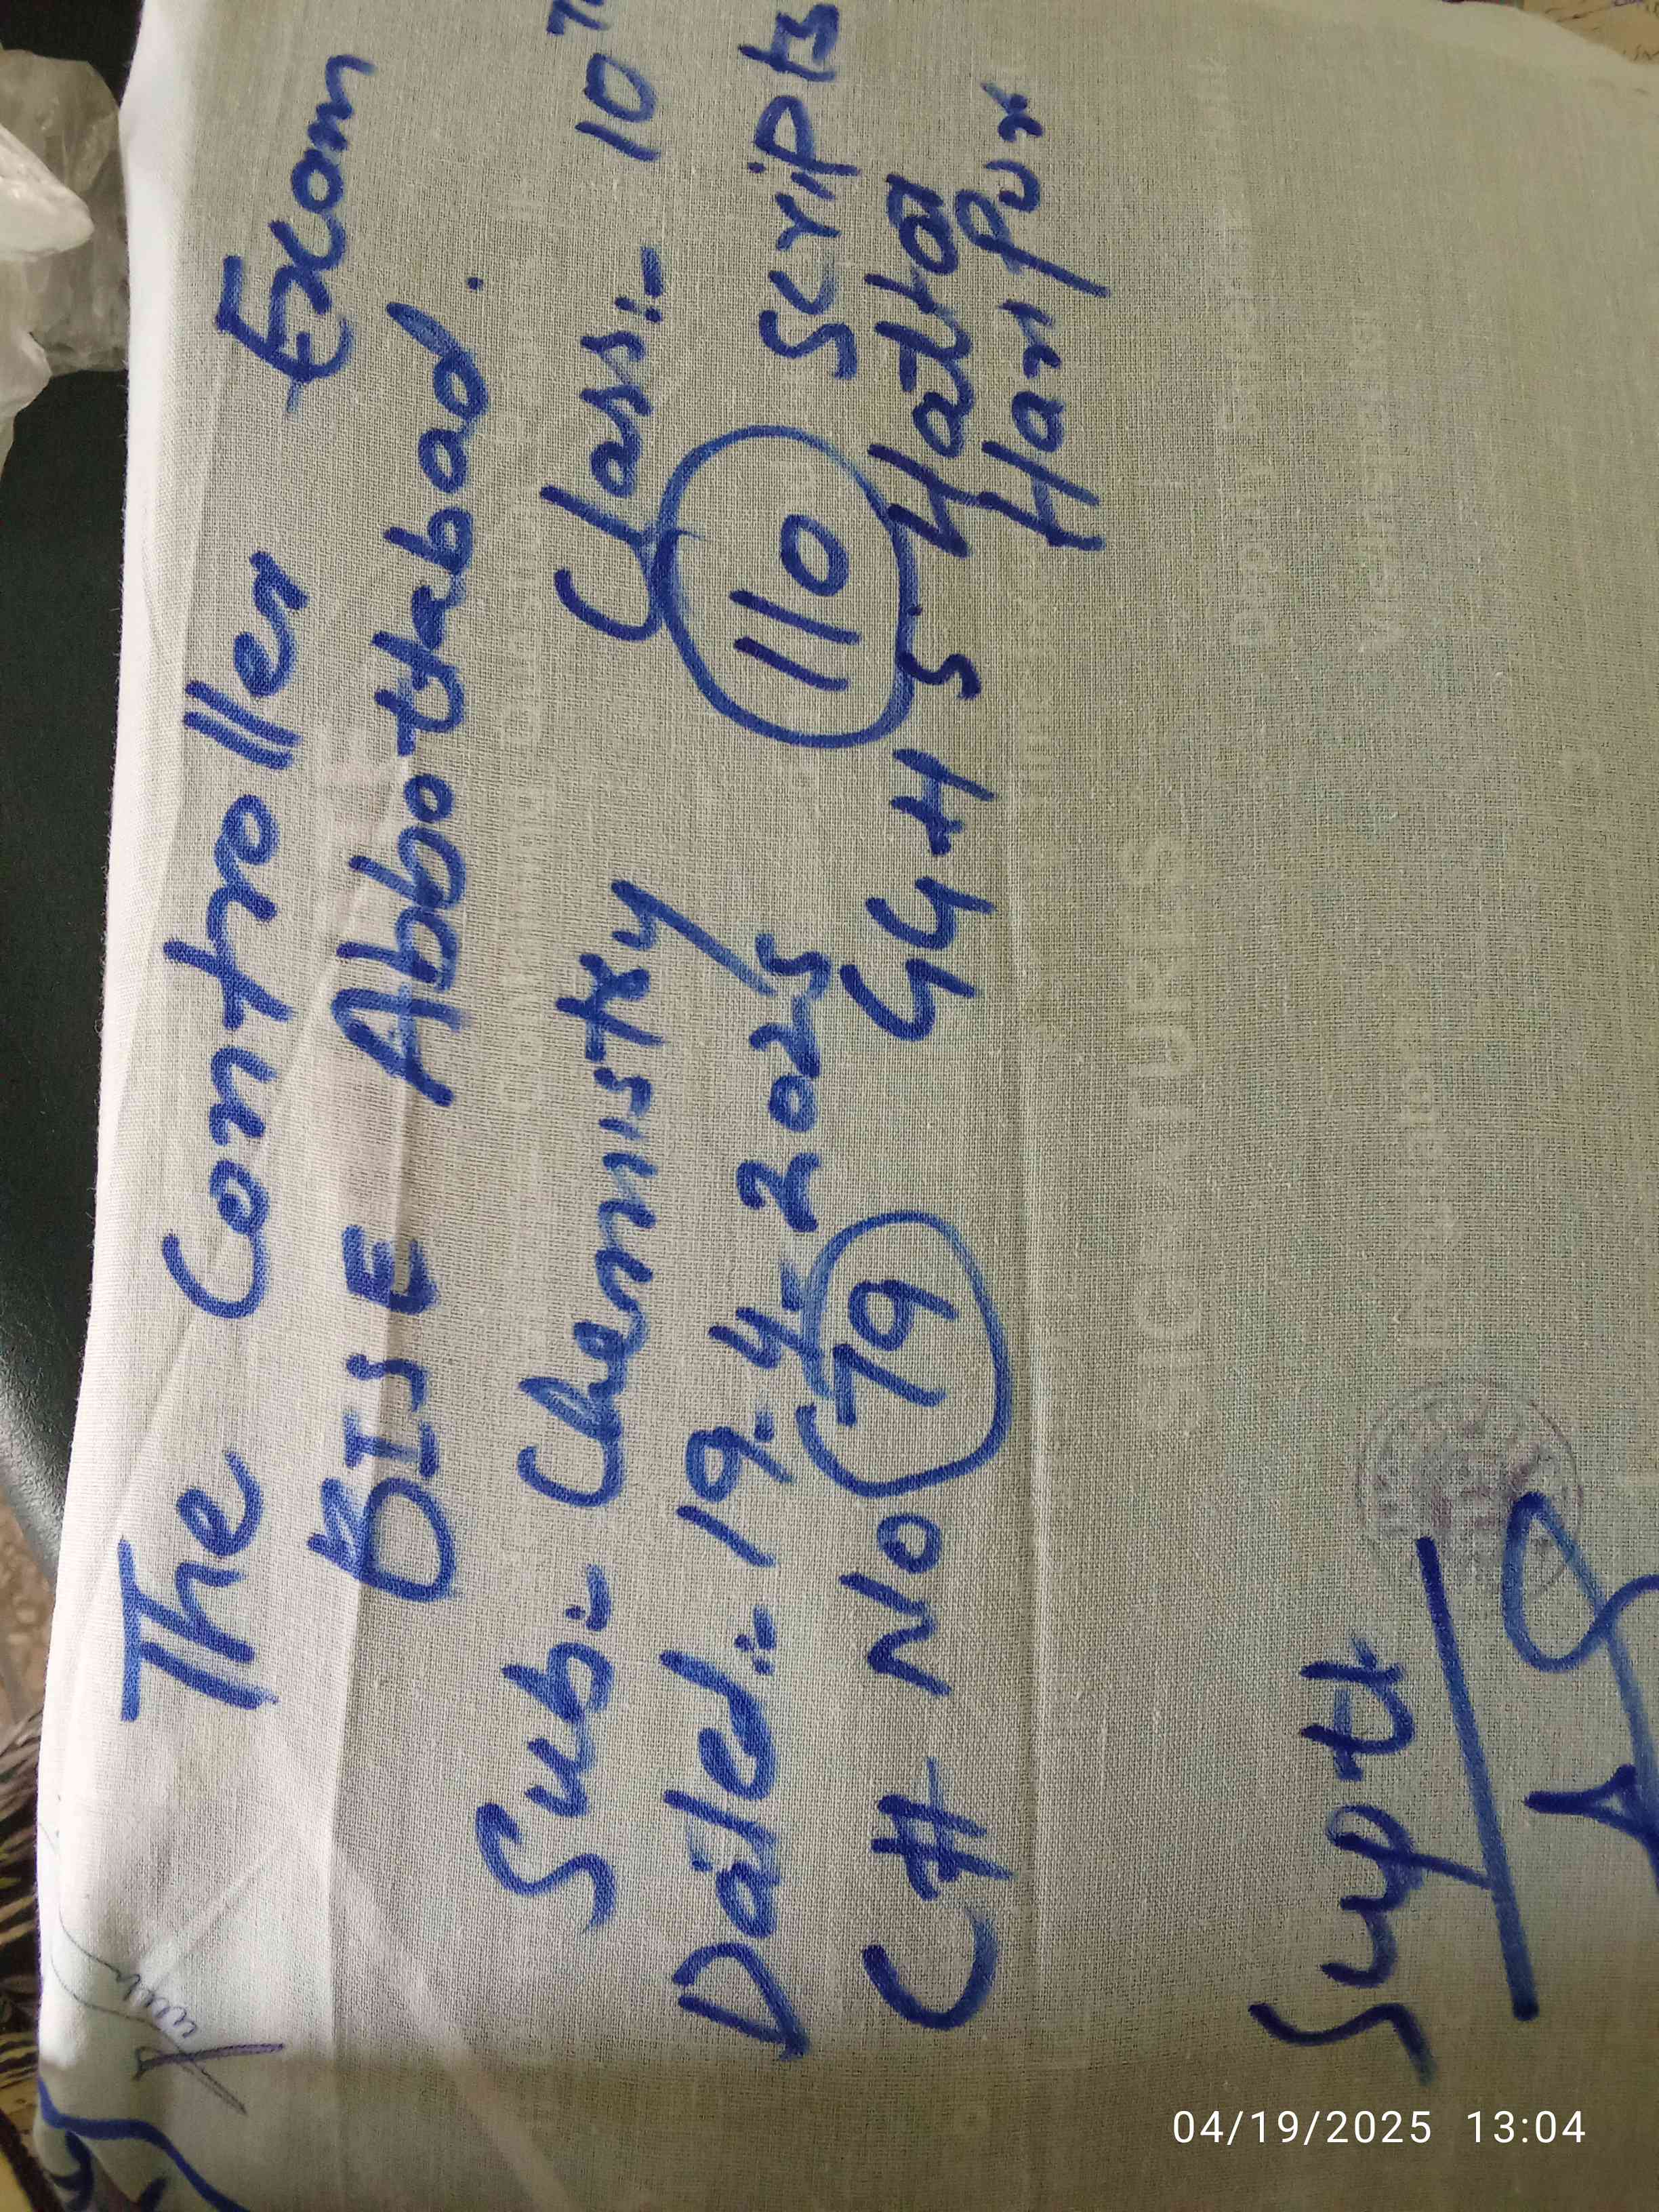 The Controller Exam
BISE Abbottabad.
Sub:- Chemistry Class:- 10
Dated:- 19-4-2025 110 Scripts
CH NO 79 GGHS Hattar
Haripur
Suptt
04/19/2025 13:04